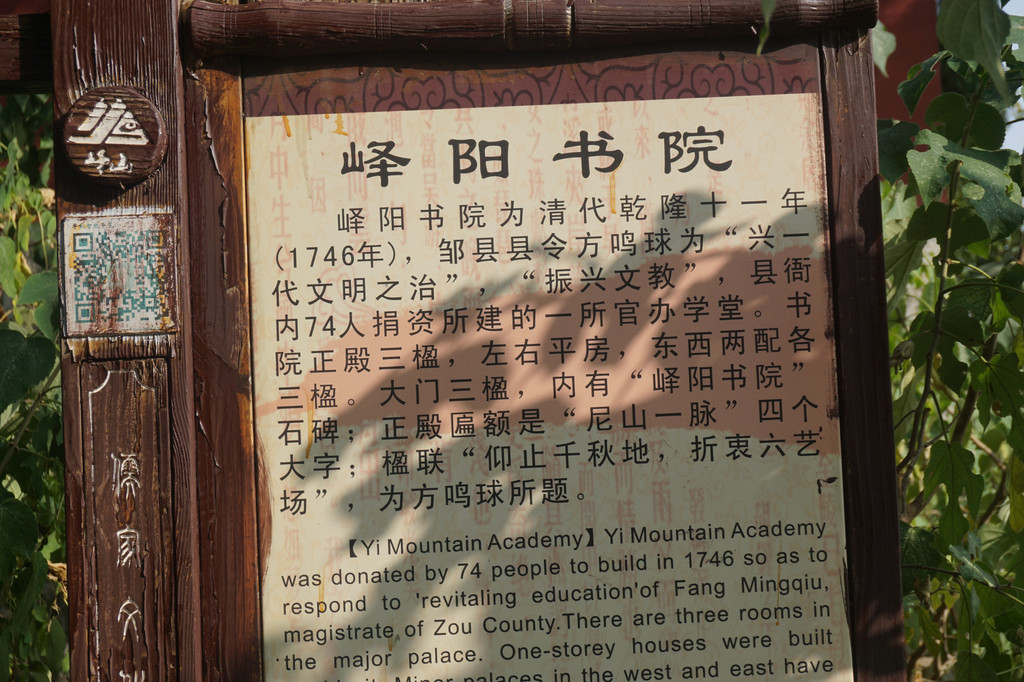 峄山
儒家文
峄阳书院
峄阳书院为清代乾隆十一年
(1746年)，邹县县令方鸣球为“兴一
代文明之治”，“振兴文教”，县衙
内74人捐资所建的一所官办学堂。书
院正殿三楹，左右平房，东西两配各
三楹。大门三楹，内有“峄阳书院”
石碑；正殿匾额是“尼山一脉”四个
大字；楹联“仰止千秋地，折衷六艺
场”，为方鸣球所题。
【Yi Mountain Academy】Yi Mountain Academy
was donated by 74 people to build in 1746 so as to
respond to 'revitaling education'of Fang Mingqiu,
magistrate of Zou County.There are three rooms in
the major palace. One-storey houses were built
Minor palaces in the west and east have